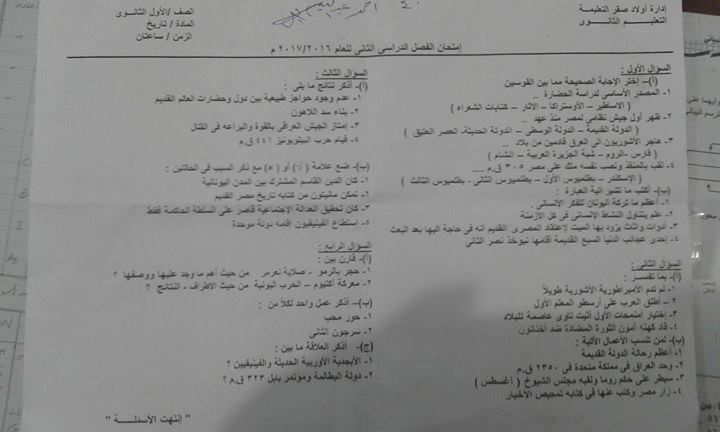 إدارة أولاد صقر التعليمة
التعليم الثانوى
الصف / الأول الثانوى
المادة / تاريخ
الزمن / ساعتان
إمتحان الفصل الدراسى الثانى للعام ٢٠١٧/٢٠١٦ م
السؤال الأول :
(أ)- إختر الإجابة الصحيحة مما بين القوسين
١- المصدر الأساسى لدراسة الحضارة ..
( الاساطير – الأوستراكا – الاثار – كتابات الشعراء )
٢- ظهر أول جيش نظامى لمصر منذ عهد ..
( الدولة القديمة – الدولة الوسطى – الدولة الحديثة- العصر العتيق )
٣- هاجر الأشوريون الى العرق قادمين من بلاد ..
( فارس -الروم – شبة الجزيرة العربية – الشام )
٤- لقب بالمنقذ ونصب نفسه ملك على مصر ٣٠٥ ق.م ....
( الإسكندر – بطلميوس الأول – بطلميوس الثانى – بطلميوس الثالث )
(ب)- أكتب ما تشير الية العبارة :
١- أعظم ما تركة اليونان للفكر الإنسانى .
٢- علم يتناول النشاط الإنسانى فى كل الأزمنة
٣- أدوات واثاث يزود بها الميت لإعتقاد المصرى القديم أنه فى حاجة اليها بعد البعث
٤- إحدى عجائب الدنيا السبع القديمة أقامها نبوخذ نصر الثانى
السؤال الثانى :
(أ)- بما تفسر :
١- لم تدم الأمبراطورية الأشورية طويلاً
٢- أطلق العرب على أرسطو المعلم الأول
٣- إختيار أمنمحات الأول أثيت تاوى عاصمة للبلاد
٤- قاد كهنه أمون الثورة المضادة ضد أخناتون
(ب)- لمن تنسب الأعمال الأتية :
١- أعظم رحالة الدولة القديمة
٢- وحد العراق فى مملكة متحدة فى ٢٣٥٠ ق.م
٣- سيطر على حكم روما ولقبه مجلس الشيوخ ( أغسطس )
٤- زار مصر وكتب عنها فى كتابه تمحيص الأخبار
السؤال الثالث :
(أ)- أذكر نتائج ما يلى :
١- عدم وجود حواجز طبيعية بين دول وحضارات العالم القديم
٢- بناء سد اللاهون
٣- إمتاز الجيش العراقى بالقوة والبراعه فى القتال
٤- قيام حرب البيلوبونيز ٤٤١ ق.م
(ب)- ضع علامة (√) أو (×) مع ذكر السبب فى الحالتين :
١- كان الدين القاسم المشترك بين المدن اليونانية
٢- تمكن مانيتون من كتابه تاريخ مصر القديم
٣- كان تحقيق العدالة الإجتماعية قاصر على السلطة الحاكمة فقط
٤- إستطاع الفينيقيون اقامه دولة موحدة
السؤال الرابع :
(أ)- قارن بين :
١- حجر بالرمو - صلاية نعرمر من حيث أهم ما وجد عليها ووصفها ؟
٢- معركة أكتيوم – الحرب البونية من حيث الاطراف - النتائج ؟
(ب)- أذكر عمل واحد لكلاً من :
١- حور محب
٢- سرجون الثانى
(ج)- أذكر العلاقة ما بين :
١- الأبجدية الأوربية الحديثة والفينيقيين ؟
٢- دولة البطالمة ومؤتمر بابل ٣٢٣ ق.م ؟
" إنتهت الأسئلة "